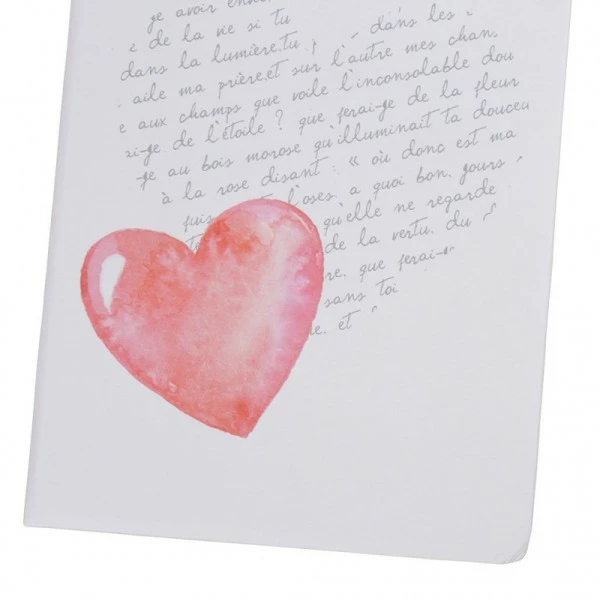 ge avoir
de la vie si tu
dans la lumière,tu dans les
aile ma prière,et sur l'autre mes chan,
e aux champs que voile l'inconsolable dou
ri-ge de l'étoile ? que ferai-ge de la fleur
-ge au bois morose qu'illuminait ta douceu
à la rose disant : « où donc est ma
fuis l'oses, a quoi bon, gours
qu'elle ne regarde
de la vertu, du
re, que ferai-
sans toi
e, et